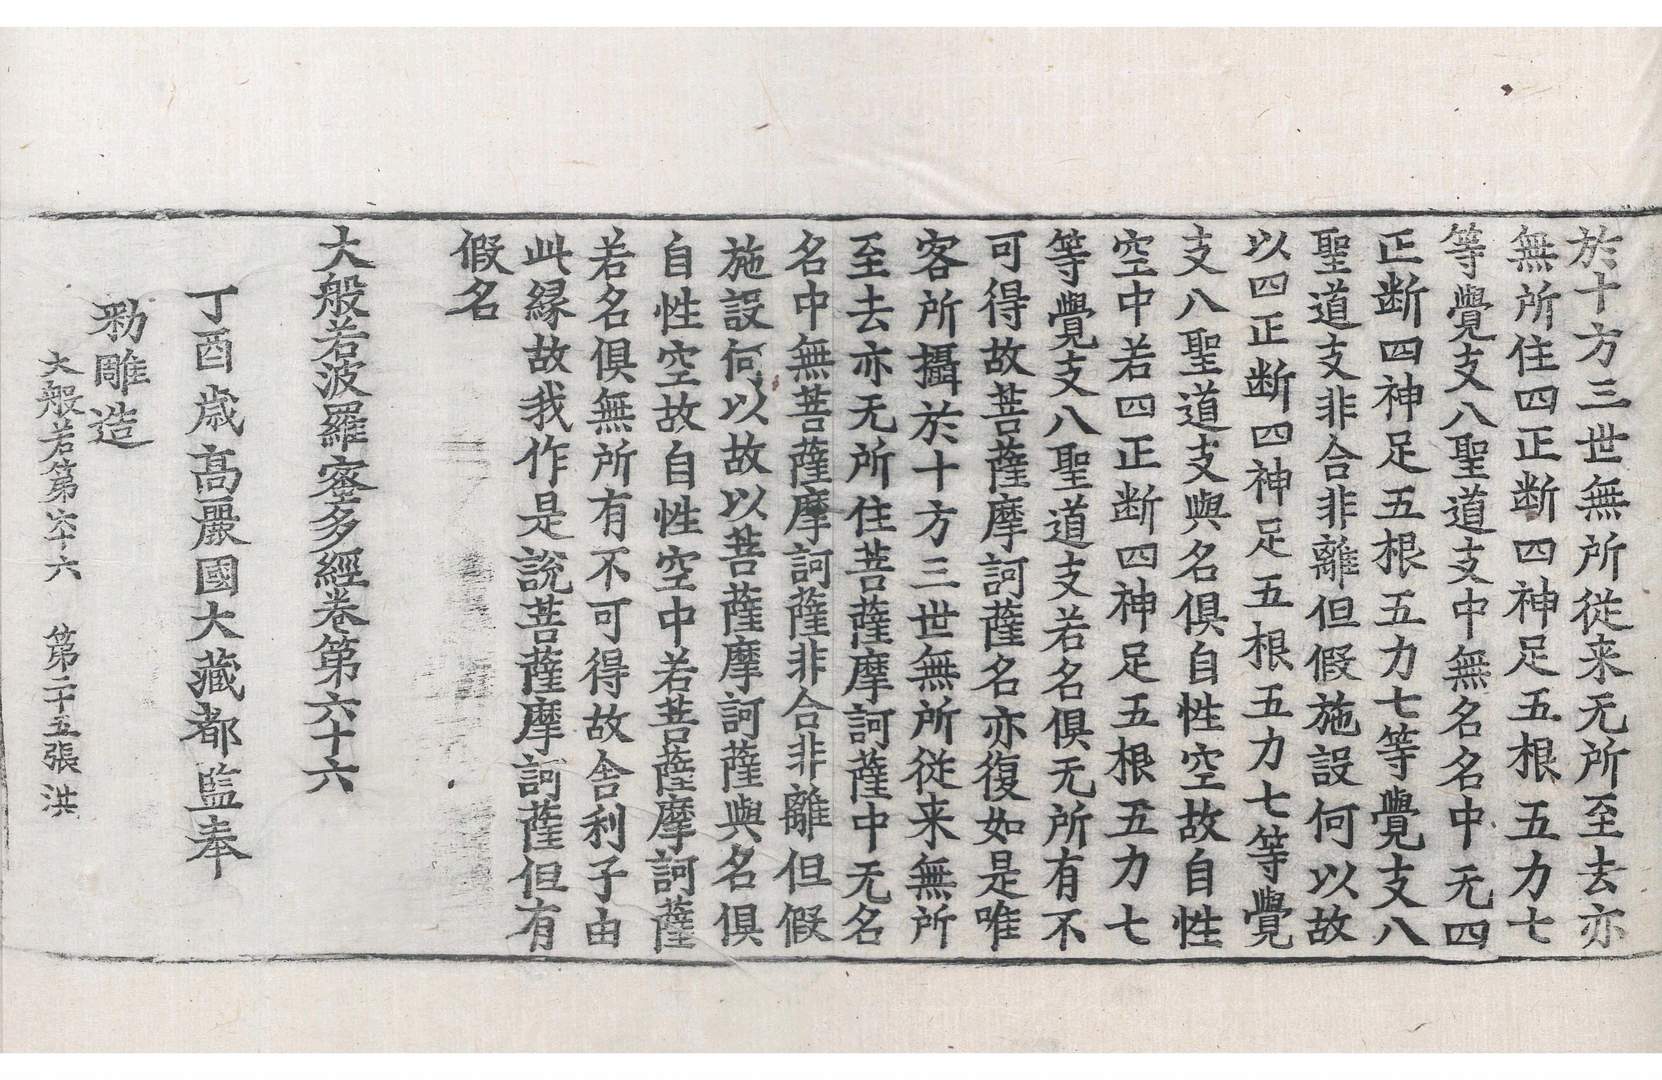 於十方三世無所從来无所至去亦
無所住四正断四神足五根五力七
等覺支八聖道支中無名名中无四
正断四神足五根五力七等覺支八
聖道支非合非離但假施設何以故
以四正断四神足五根五力七等覺
支八聖道支與名俱自性空故自性
空中若四正断四神足五根五力七
等覺支八聖道支若名俱无所有不
可得故菩薩摩訶薩名亦復如是唯
客所攝於十方三世無所從来無所
至去亦无所住菩薩摩訶薩中无名
名中無菩薩摩訶薩非合非離但假
施設何以故以菩薩摩訶薩與名俱
自性空故自性空中若菩薩摩訶薩
若名俱無所有不可得故舍利子由
此縁故我作是說菩薩摩訶薩但有
假名
大般若波羅蜜多經卷第六十六
丁酉歲高麗國大藏都監奉
勑雕造
大般若第六十六 第二十五張 洪